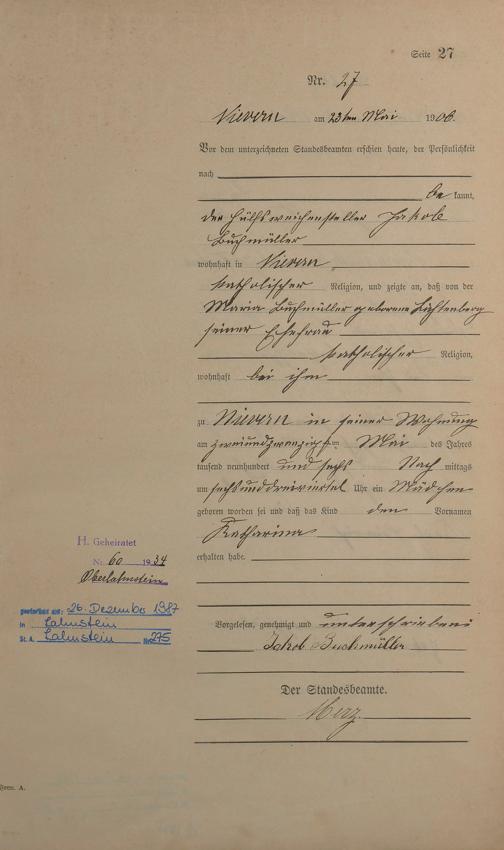 Seite 27
Nr. 27
Nievern am 23ten Mai 1906.
Vor dem unterzeichneten Standesbeamten erschien heute, der Persönlichkeit
nach
be kannt,
der Hülfsweichensteller Jakob
Buchmüller
wohnhaft in Nievern
katholischer Religion, und zeigte an, daß von der
Maria Buchmüller geborene Lichtenberg
seiner Ehefrau
katholischer Religion,
wohnhaft bei ihm
zu Nievern in seiner Wohnung
am zweiundzwanzigsten Mai des Jahres
tausend neunhundert und sechs Nach mittags
um sechs und dreiviertel Uhr ein Mädchen
geboren worden sei und daß das Kind den Vornamen
Katharina
erhalten habe.
H. Geheiratet
Nr. 60 1934
Oberlahnstein
gestorben am: 26. Dezember 1987
in Lahnstein
St. A. Lahnstein Nr. 275
Vorgelesen, genehmigt und unterschrieben
Jakob Buchmüller
Der Standesbeamte.
Merz.
Form. A.